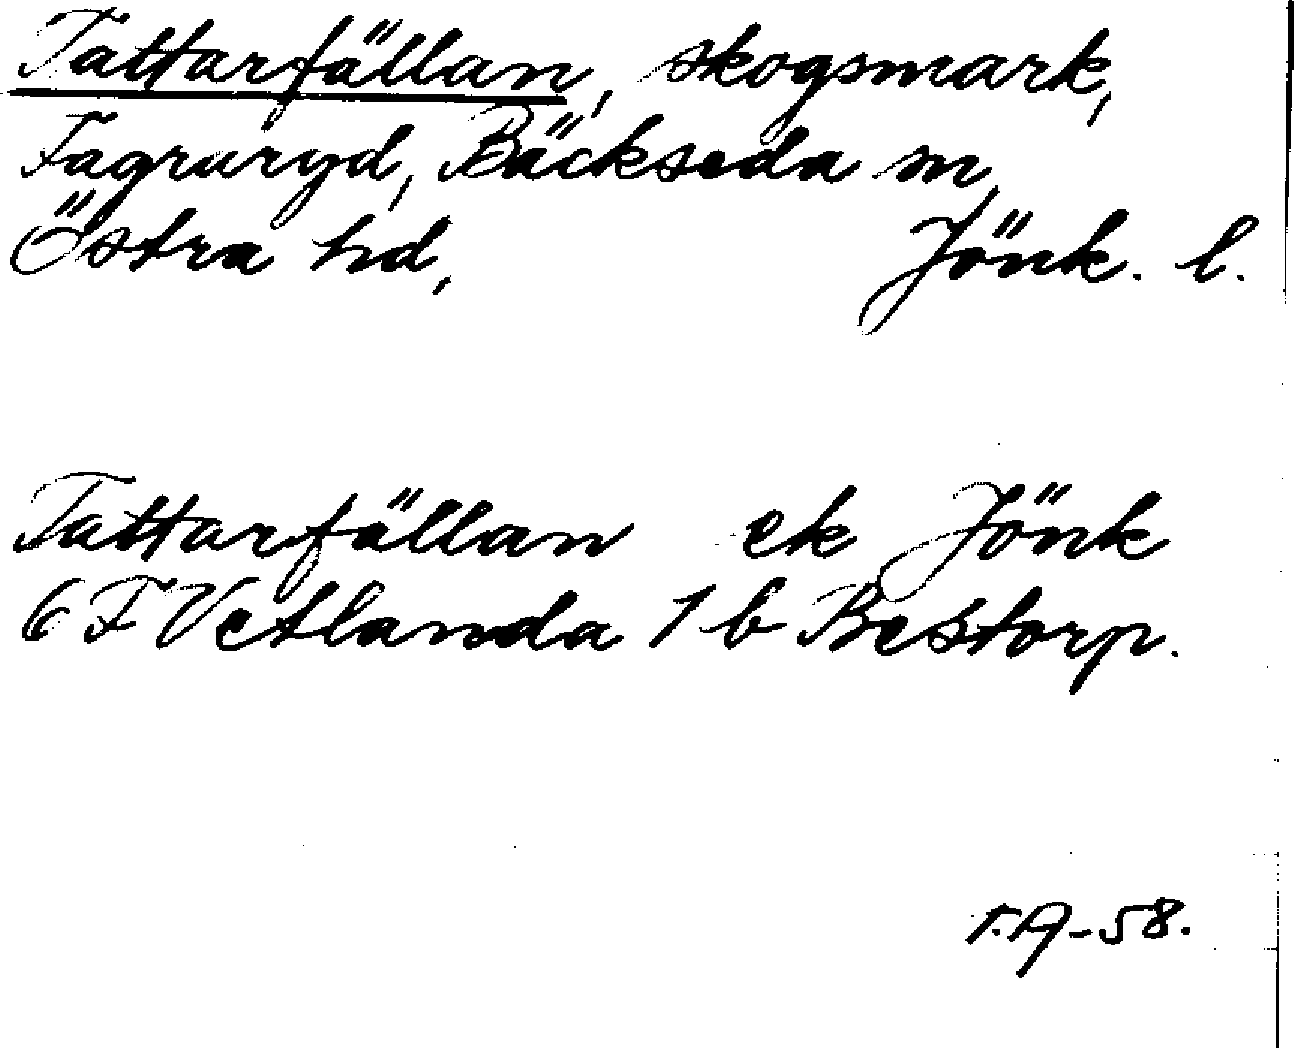 Tattarfällan, skogsmark,
Fagraryd, Bäckseda sn,
Östra hd, Jönk. l.
Tattarfällan ek Jönk
6 F Vetlanda 1 b Bestorp.
-58.